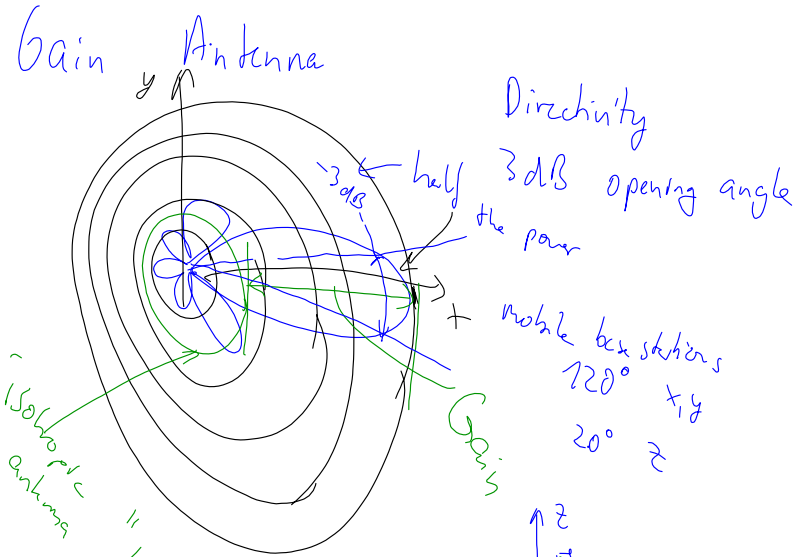 Gain Antenna
y
Directivity
-3dB
half
3dB opening angle
the power
x
mobile base stations
120° x,y
20° z
Gain
isotropic
antenna
"
z